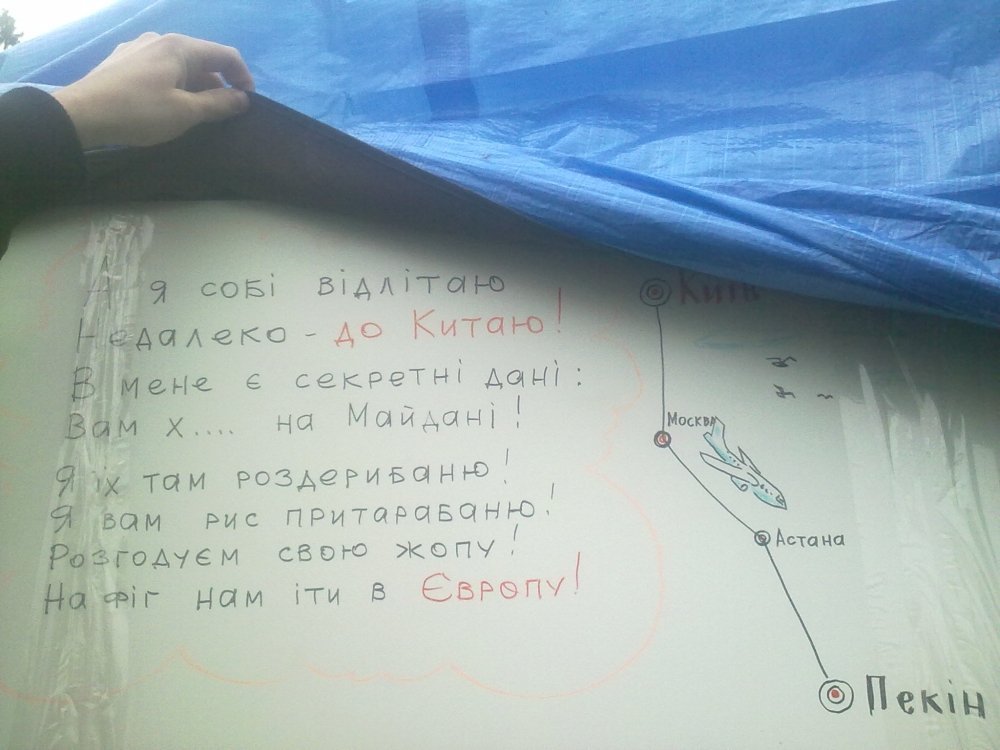 А я собі відлітаю
Недалеко - до Китаю!
В мене є секретні дані:
Вам х.... на Майдані!
Я їх там роздерибаню!
Я вам рис притарабаню!
Розгодуєм свою жопу!
На фіг нам іти в Європу!
Київ
Москва
Астана
Пекін